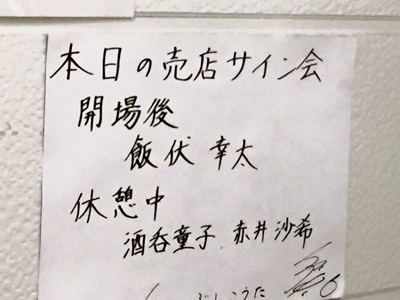 本日の売店サイン会
開場後
飯伏幸太
休憩中
酒呑童子 赤井沙希